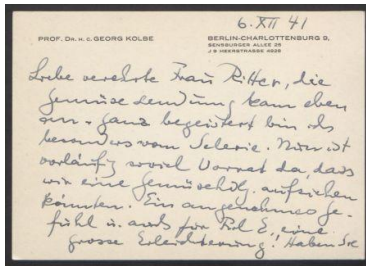 6. XII 41
PROF. DR. H. C. GEORG KOLBE
BERLIN-CHARLOTTENBURG 9,
SENSBURGER ALLEE 25
J 9 HEERSTRASSE 4025
Liebe verehrte Frau Ritter, die
Gemüse sendung kam eben
an - ganz begeistert bin ich
besonders vom Selerie. Nun ist
vorläufig soviel Vorrat da, dass
wir eine Gemüsehdlg. aufziehen
könnten. Ein angenehmes Ge-
fühl u. auch für Frl. E, eine
grosse Erleichterung! Haben Sie